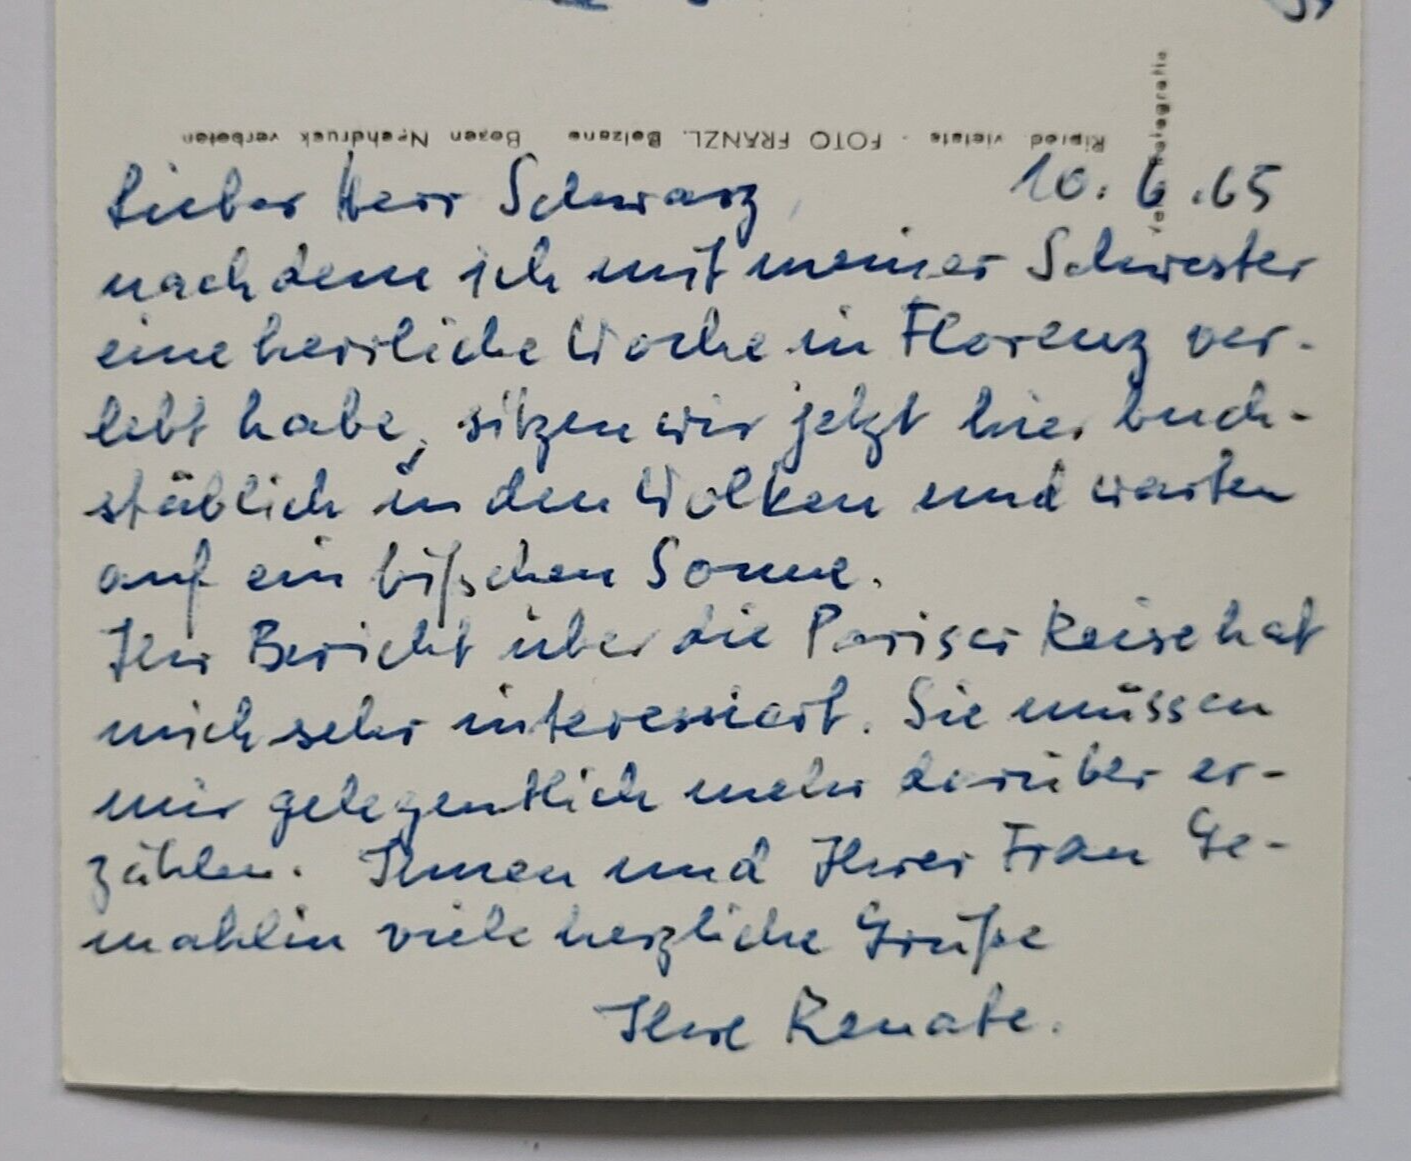 Riprod. vietata - FOTO FRÄNZL, Bolzano Bozen Nachdruck verboten
Lieber Herr Schwarz, 10.6.65
nachdem ich mit meiner Schwester
eine herrliche Woche in Florenz ver-
lebt habe, sitzen wir jetzt hier buch-
stäblich in den Wolken und warten
auf ein bißchen Sonne.
Ihr Bericht über die Pariser Reise hat
mich sehr interessiert. Sie müssen
mir gelegentlich mehr darüber er-
zählen. Ihnen und Ihrer Frau Ge-
mahlin viele herzliche Grüße
Ihre Renate.